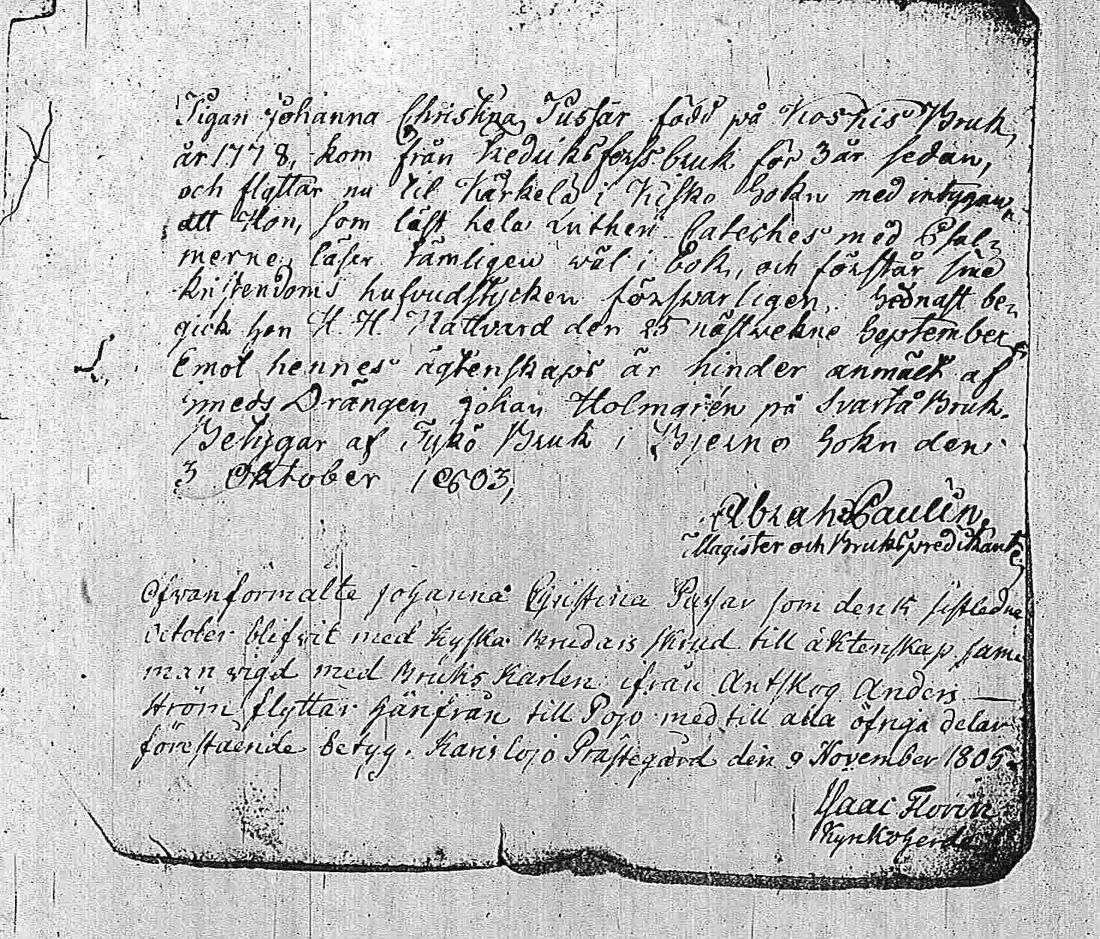 Pigan Johanna Christina Pussar född på Koskis Bruk,
år 1778, kom från Fredriksforssbruk för 3 år sedan,
och flyttar nu til Kärkelä i Kisko Sokn med intygan,
att Hon, som läst hela Lutheri Cateches med Psal-
merne, läser tämligen wäl i bok, och förstår sine
kristendoms hufvudstycken förswarligen. Sednast be-
gick hon H. H. Nattvard den 25 nästwekne September,
Emot hennes ägtenskaps är hinder anmält af
Smeds Drängen Johan Holmgrén på Svartå Bruk.
Betygar af Tykö Bruk i Bjerno Sokn den
3 Oktober 1803,
Abrah Paulin,
Magister och Brukspredikant
Ofvanformälte Johanna Christina Pussar som den 15 sistledne
October blifwit med Kyska Brudars skrud till äktenskap sam-
man vigd med Bruks Karlen ifrån Antskog Anders —
Ström, flyttar härifrån till Pojo med till alla öfriga delar
förestående betyg. Karislojo Prästegård den 9 November 1805.
Isaac Florin
Kyrkoherde